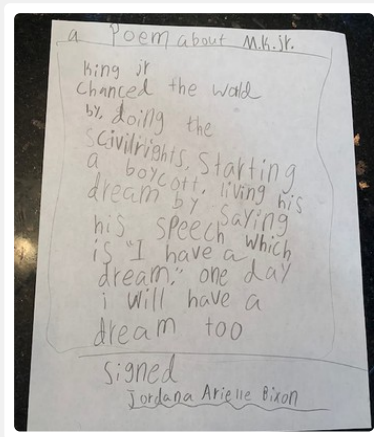 a Poem about M.K.jr.
King jr
chanced the world
by, doing the
scivilrights, Starting
a boycott, living his
dream by saying
his speech which
is "I have a
dream." one day
i will have a
dream too
Signed
Jordana Arielle Bixon